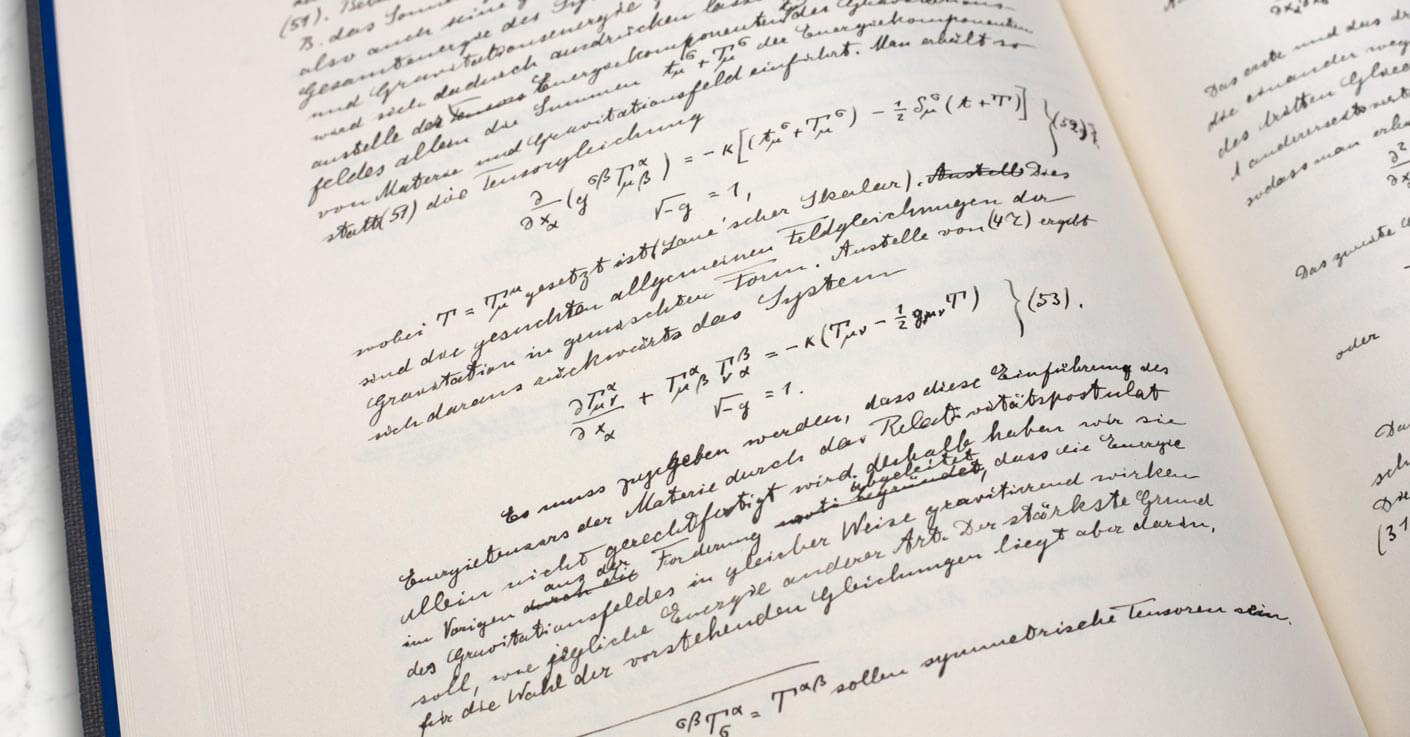 (51). 
B. das Sonne
also auch seine
Gesamtenergie des Sys
und Gravitationsenergie
wird sich dadurch ausdrücken lass
anstelle der Energiekomponenten des Gravitations-
feldes allein die Summen t_μ^σ + T_μ^σ der Energiekomponenten
von Materie und Gravitationsfeld einführt. Man erhält so
statt (51) die Tensorgleichung
∂/∂x_α (g^{σβ} Γ_{μβ}^α) = −κ[(t_μ^σ + T_μ^σ) − ½ δ_μ^σ (t + T)] } (52),
√−g = 1,
wobei T = T_μ^μ gesetzt ist (Laue'scher Skalar). Anstelle Dies
sind die gesuchten allgemeinen Feldgleichungen der
Gravitation in gemischter Form. Anstelle von (47) ergibt
sich daraus rückwärts das System
∂Γ_{μν}^α/∂x_α + Γ_{μβ}^α Γ_{να}^β = −κ(T_{μν} − ½ g_{μν} T) } (53).
√−g = 1.
Es muss zugegeben werden, dass diese Einführung des
Energietensors der Materie durch das Relativitätspostulat
allein nicht gerechtfertigt wird. deshalb haben wir sie
im Vorigen durch die aus der Forderung begründet abgeleitet, dass die Energie
des Gravitationsfeldes in gleicher Weise gravitierend wirken
soll, wie jegliche Energie anderer Art. Der stärkste Grund
für die Wahl der vorstehenden Gleichungen liegt aber darin,
σβ T_σ^α = T^{αβ} sollen symmetrische Tensoren sein.
Das erste und das dr
die einander weg
des dritten Glied
andererseits
sodass man erh
∂²
Das zweite
oder
(31